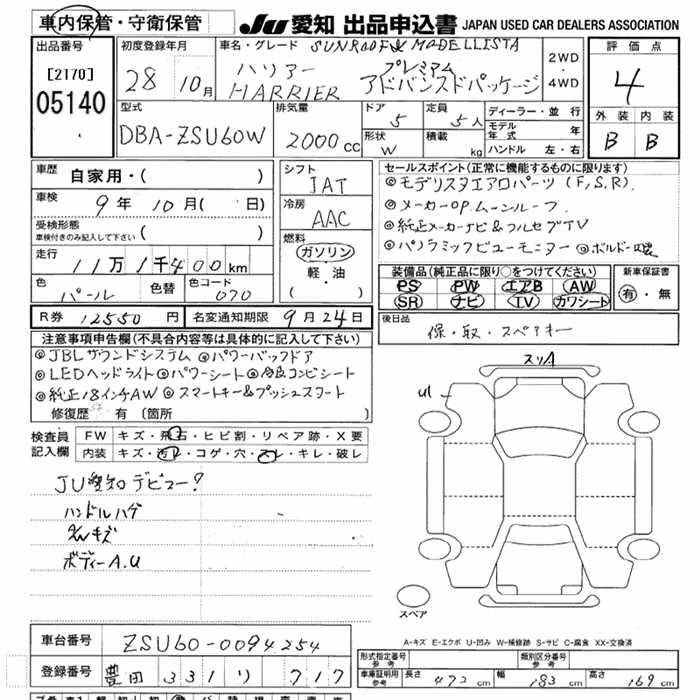 車内保管・守衛保管 JU 愛知 出品申込書 JAPAN USED CAR DEALERS ASSOCIATION
出品番号
[2170]
05140
初度登録年月
28 10月
車名・グレード SUNROOF& MODELLISTA
ハリアー プレミアム
HARRIER アドバンスドパッケージ
2WD
・
4WD
評価点
4
外装 内装
B B
型式
DBA-ZSU60W
排気量
2000 cc
ドア 5
定員 5人
形状 W
積載 kg
ディーラー・並行
モデル年式 年
ハンドル 左・右
車歴
自家用・( )
車検
9年 10月( 日)
受検形態
車検付きのみ記入して下さい ( )
走行
11万1千400km
色 パール
色替
色コード 070
シフト
IAT
冷房
AAC
燃料
ガソリン
・
軽・油
( )
R券 12550円 名変通知期限 9月24日
セールスポイント(正常に機能するものに限ります)
◎モデリスタエアロパーツ(F,S,R)
◎メーカーOP.ムーンルーフ
◎純正メーカーナビ&フルセグTV
◎パノラミックビューモニター ◎ボルドー内装
装備品(純正品に限り○をつけてください)
PS PW エアB AW
SR ナビ TV カワシート
新車保証書
有・無
後日品
保・取・スペアキー
注意事項申告欄(不具合内容等は具体的に記入して下さい)
◎JBLサウンドシステム ◎パワーバックドア
◎LEDヘッドライト ◎パワーシート ◎合皮コンビシート
◎純正18インチAW ◎スマートキー&プッシュスタート
修復歴 有 〔箇所 〕
検査員記入欄
FW キズ・飛石・ヒビ割・リペア跡・X要
内装 キズ・汚レ・コゲ・穴・スレ・キレ・破レ
JU愛知デビュー!
ハンドルハゲ
ボディーA.U
スリA
U1
スペア
A-キズ E-エクボ U-凹み W-補修跡 S-サビ C-腐食 XX-交換済
車台番号 ZSU60-0094254
登録番号 豊田 331 り 717
形式指定番号 参考
類別区分番号 参考
車庫証明用 参考 長さ 472 cm 幅 183 cm 高さ 169 cm